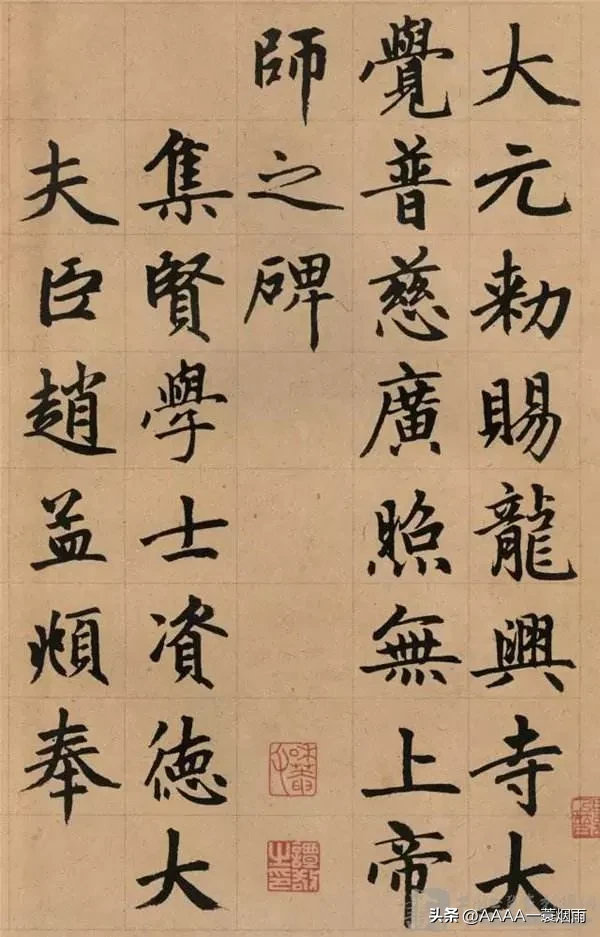 大元敕賜龍興寺大
覺普慈廣照無上帝
師之碑
集賢學士資德大
夫臣趙孟頫奉
頭条 @AAAA一蓑烟雨